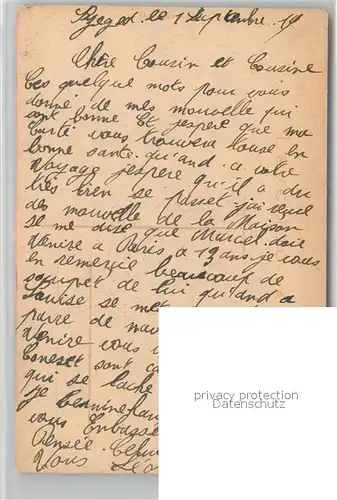 Szeged le 1 Septembre. 19
Chère Cousin et Cousine
Ces quelque mots pour vous
donné de mes nouvelle qui
sont bonne Et jespere que ma
carte vous trouvera tous en
bonne santé. qu'and a votre
Voyage jespère qu'il a du
très bien se passer j'ai reçue
des nouvelle de la Maison
se me dise que Marcel doit
venire a Paris a 13 ans. je vous
en remercie beaucoup de
soccupet de lui qu'and a
Louise se met
parre de
venire vous
sont
qui se
je
vous Embasse
Pensée.
Vous Léo
privacy protection
Datenschutz